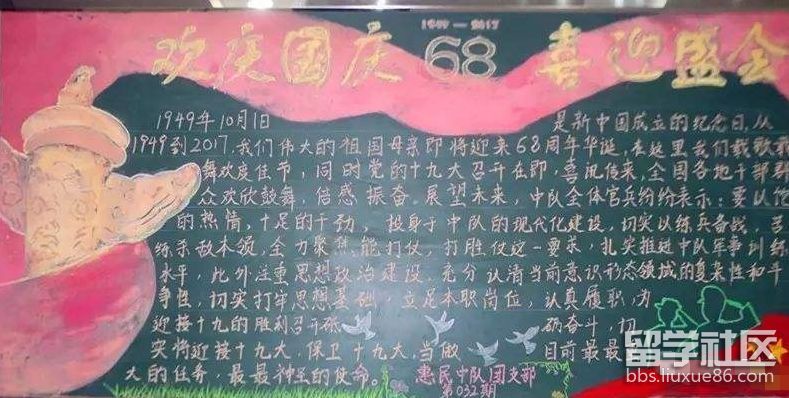 1949—2017
欢庆国庆 68 喜迎盛会
1949年10月1日 是新中国成立的纪念日,从
1949到2017,我们伟大的祖国母亲即将迎来68周年华诞,在这里我们载歌载
舞欢度佳节,同时党的十九大召开在即,喜讯传来,全国各地干部群
众欢欣鼓舞,倍感振奋。展望未来,中队全体官兵纷纷表示:要以饱
的热情,十足的干劲,投身于中队的现代化建设,切实以练兵备战,苦
练杀敌本领,全力聚焦能打仗,打胜仗这一要求,扎实推进中队军事训练
水平,此外注重思想政治建设,充分认清当前意识形态领域的复杂性和斗
争性,切实打牢思想基础,立足本职岗位,认真履职,为
迎接十九的胜利召开 砺奋斗,切
实将迎接十九大,保卫十九大,当做 目前最最
大的任务,最最神圣的使命。 惠民中队团支部
第032期
留学社区
bbs.liuxue86.com